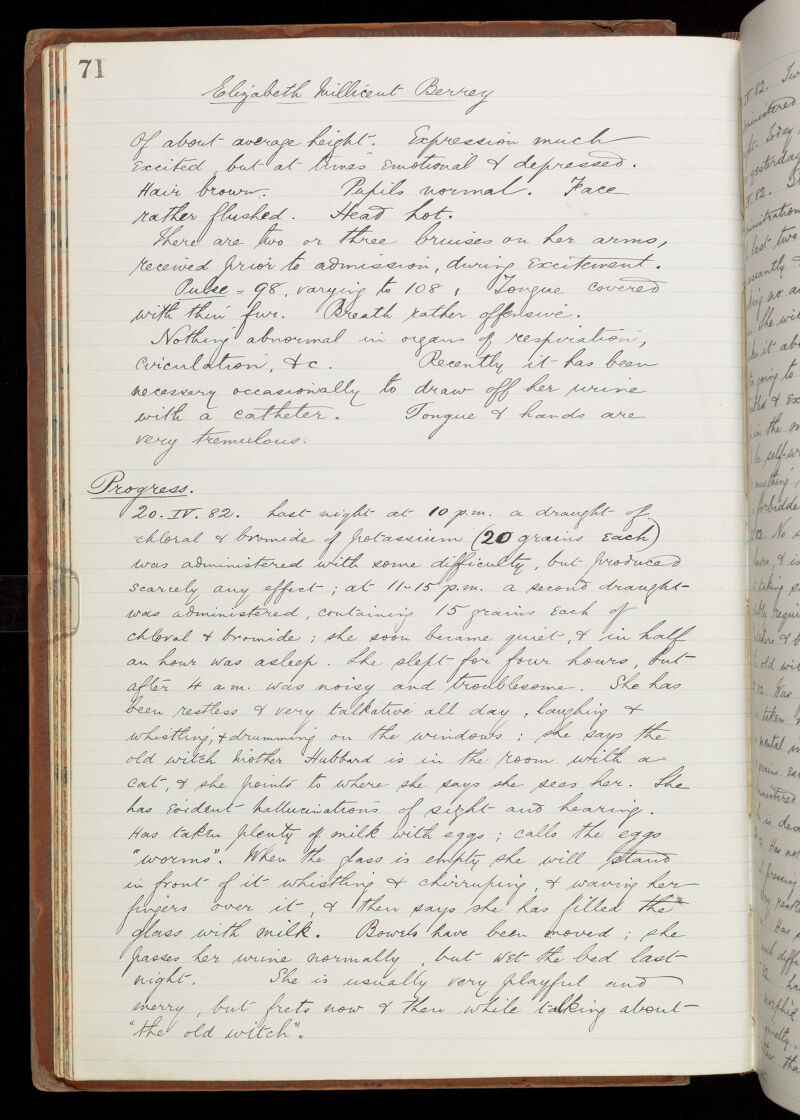 71
Elizabeth Millicent Berrey
Of about average height. Expression much
excited, but at times emotional & depressed.
Hair brown. Pupils normal. Face
rather flushed. Head hot.
There are two or three bruises on her arms,
received prior to admission, during excitement.
Pulse = 98, varying to 108, Tongue covered
with thin fur. Breath rather offensive.
Nothing abnormal in organs of respiration,
circulation, &c. Recently it has been
necessary occasionally to draw off her urine
with a catheter. Tongue & hands are
very tremulous.
Progress.
20. IV. 82. Last night at 10 p.m. a draught of
chloral & bromide of potassium (20 grains each)
was administered with some difficulty, but produced
scarcely any effect; at 11-15 p.m. a second draught
was administered, containing 15 grains each of
chloral & bromide; she soon became quiet, & in half
an hour was asleep. She slept for four hours, but
after 4 a.m. was noisy and troublesome. She has
been restless & very talkative all day, laughing &
whistling, & drumming on the windows; she says the
old witch Mother Hubbard is in the room with a
cat, & she points to where she says she sees her. She
has evident hallucinations of sight and hearing.
Has taken plenty of milk with eggs; calls the eggs
"worms". When the glass is empty she will stand
in front of it whistling & chirruping, & waving her
fingers over it, & then says she has filled the
glass with milk. Bowels have been moved; she
passes her urine normally, but wet the bed last
night. She is usually very playful and
merry, but frets now & then while talking about
"the old witch".